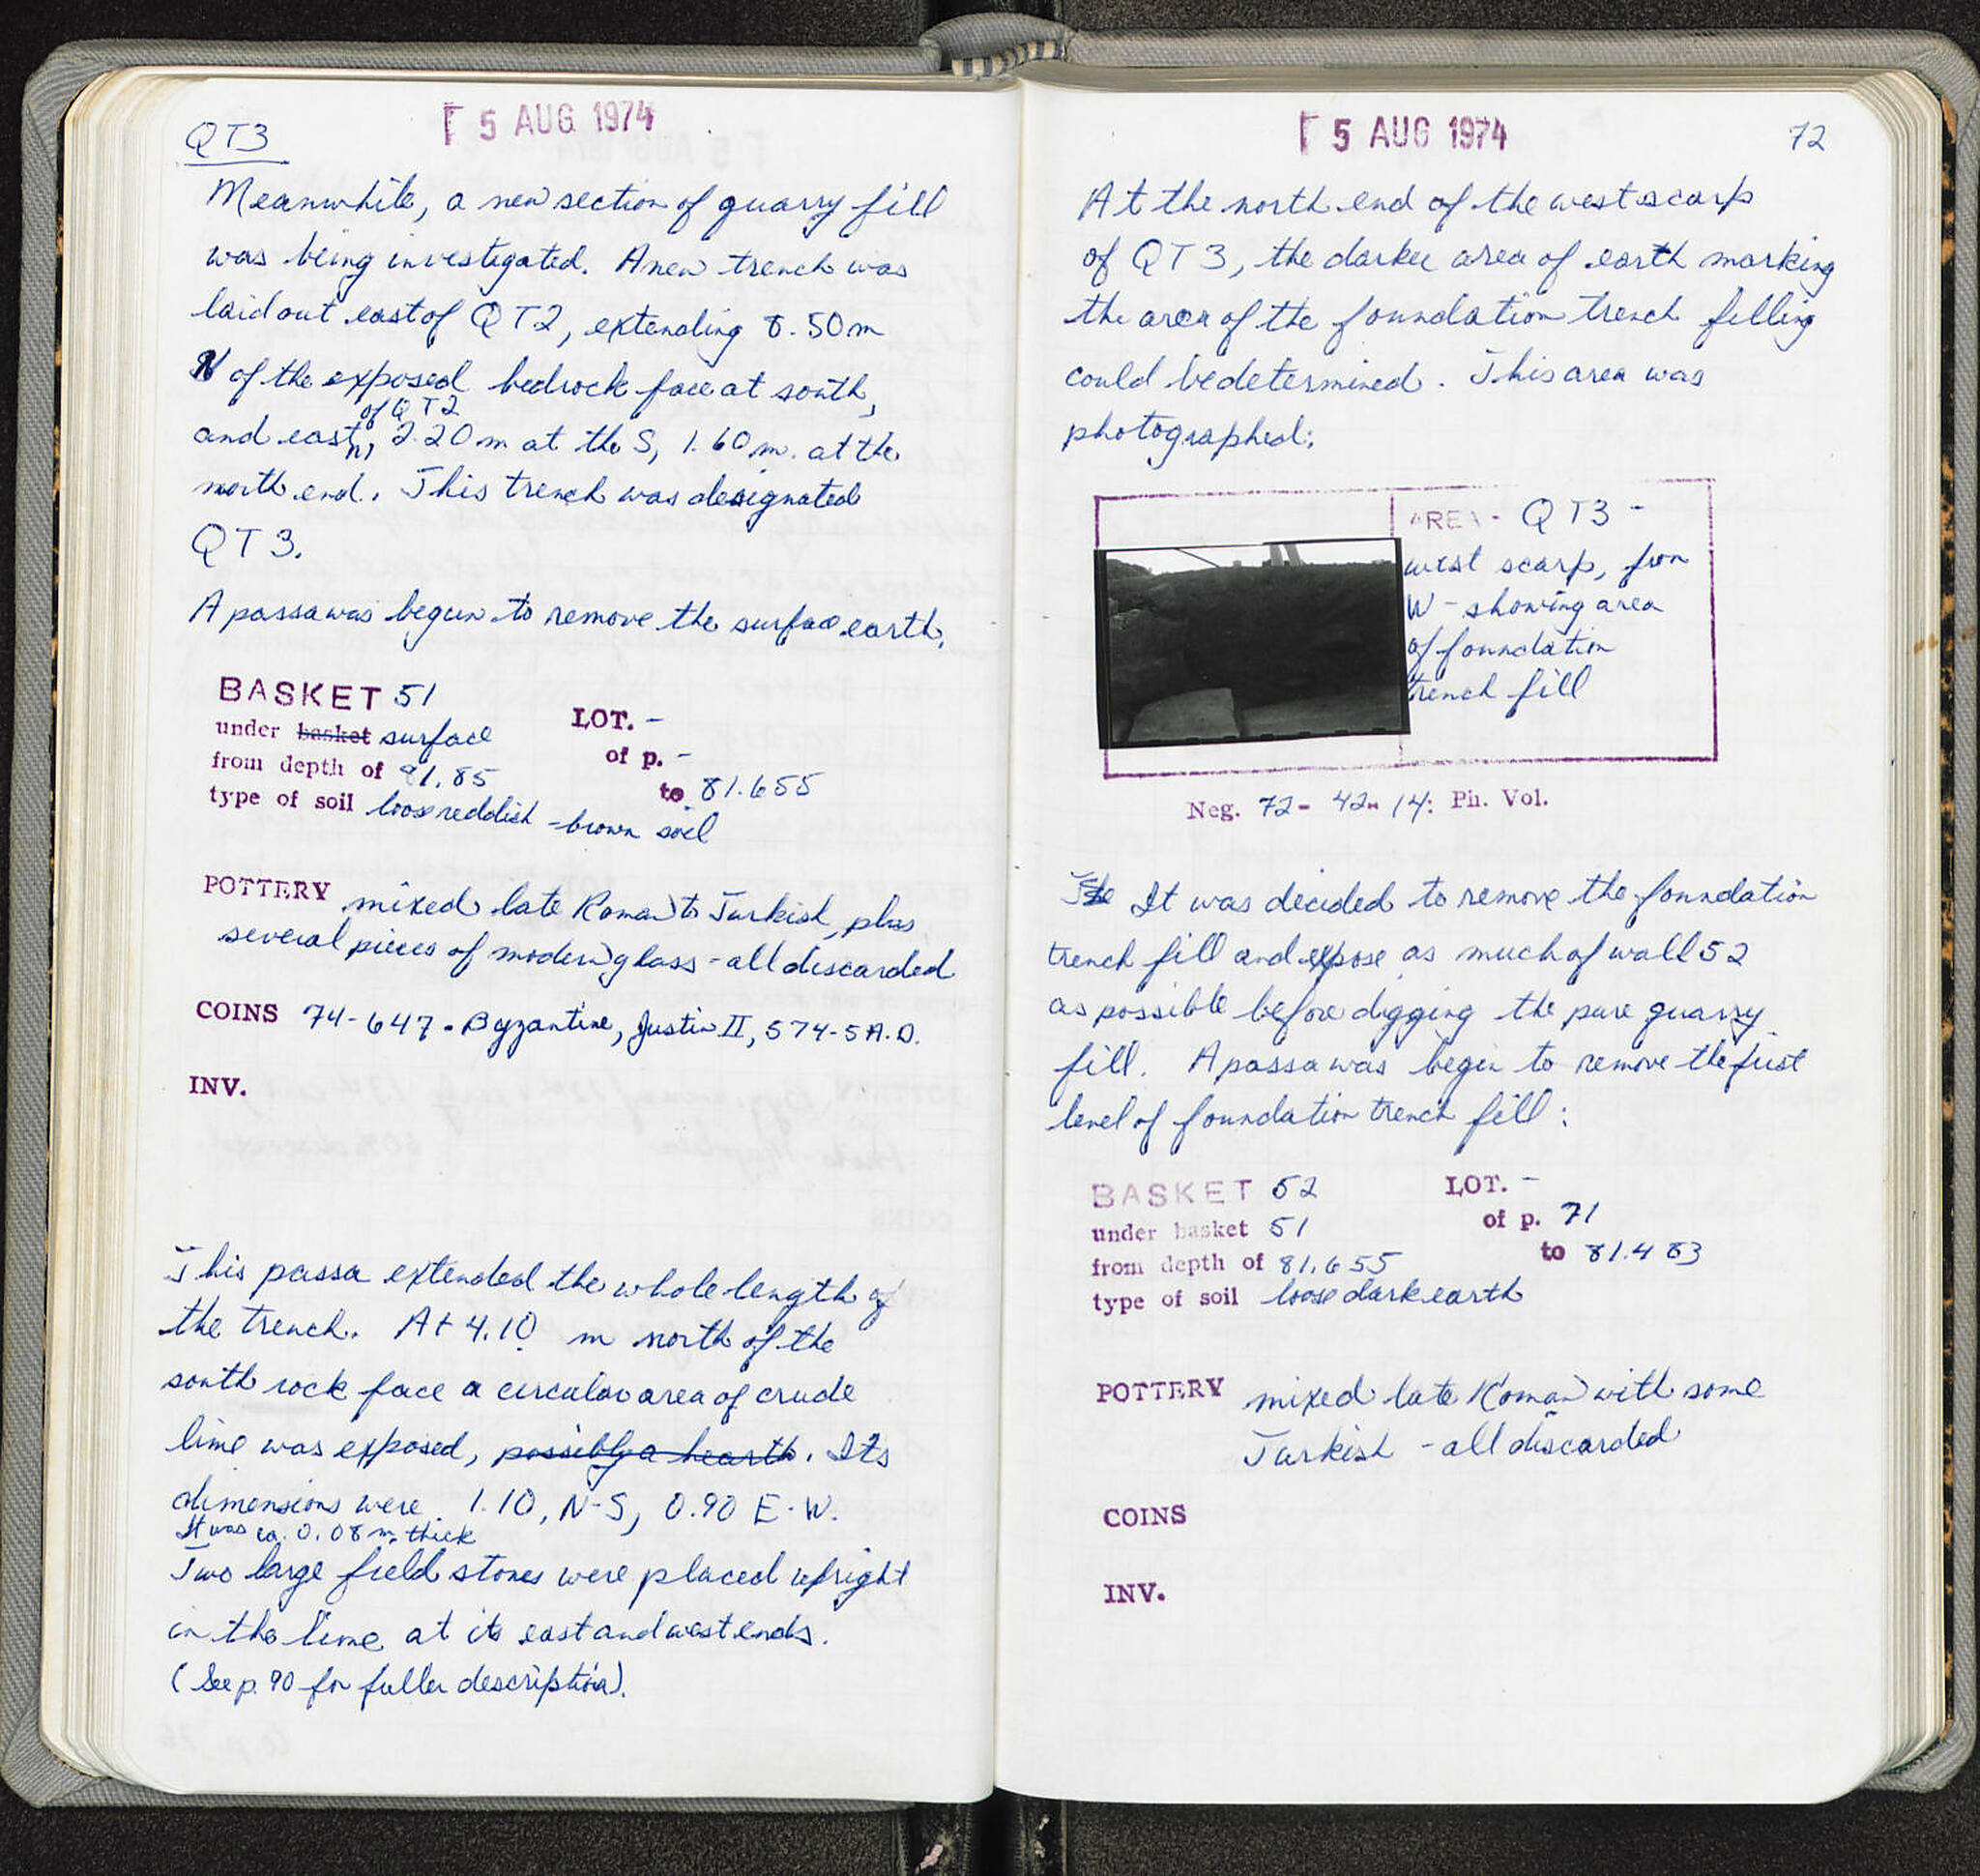 QT3
5 AUG 1974
Meanwhile, a new section of quarry fill
was being investigated. A new trench was
laid out east of QT2, extending 8.50 m
N of the exposed bedrock face at south,
of QT2
and east, 2.20 m at the S, 1.60 m. at the
north end. This trench was designated
QT3.
A passa was begun to remove the surface earth.
BASKET 51
LOT. -
under basket surface
of p. -
from depth of 81.85
to 81.655
type of soil loose reddish-brown soil
POTTERY mixed late Roman to Turkish, plus
several pieces of modern glass - all discarded
COINS 74-647 - Byzantine, Justin II, 574-5 A.D.
INV.
This passa extended the whole length of
the trench. At 4.10 m north of the
south rock face a circular area of crude
lime was exposed, possibly a hearth. Its
dimensions were 1.10, N-S, 0.90 E-W.
It was ca. 0.08 m. thick
Two large field stones were placed upright
in the lime at its east and west ends.
(See p. 90 for fuller description).
5 AUG 1974
72
At the north end of the west scarp
of QT3, the darker area of earth marking
the area of the foundation trench filling
could be determined. This area was
photographed:
AREA - QT3 -
west scarp, from
W - showing area
of foundation
trench fill
Neg. 72- 42- 14: Ph. Vol.
The It was decided to remove the foundation
trench fill and expose as much of wall 52
as possible before digging the pure quarry
fill. A passa was begin to remove the first
level of foundation trench fill:
BASKET 52
LOT. -
under basket 51
of p. 71
from depth of 81.655
to 81.483
type of soil loose dark earth
POTTERY mixed late Roman with some
Turkish - all discarded
COINS
INV.